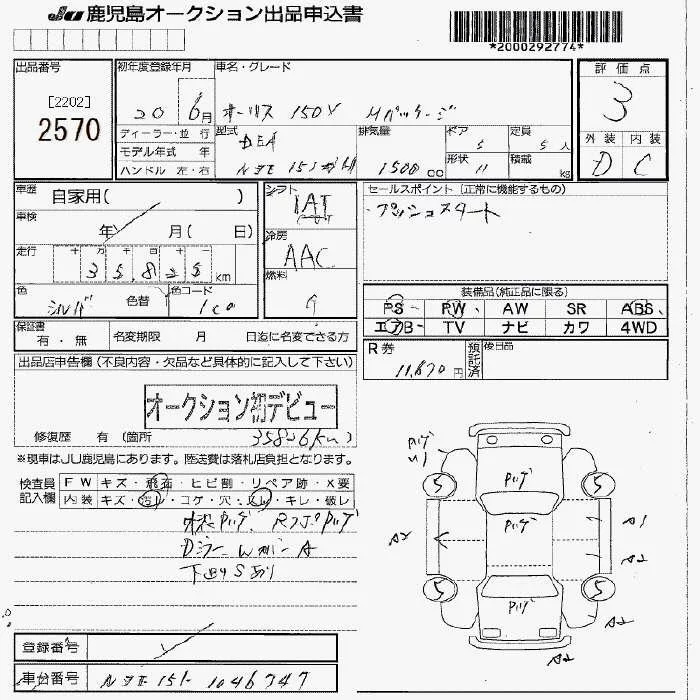 JU 鹿児島オークション出品申込書
*2000292774*
出品番号
[2202]
2570
初年度登録年月 車名・グレード
20 6月 オーリス 150X Mパッケージ
ディーラー・並 行
モデル年式 年
ハンドル 左・右
型式 DBA
NZE151
排気量 1500 cc
ドア 5
形状 11
定員 5 人
積載 kg
評価点
3
外装 内装
D C
車歴 自家用( )
車検 年 月( 日)
走行 十 万 千 百 十
35,825 km
色 シルバ 色替 色コード 1C0
シフト IAT
冷房 AAC
燃料 G
セールスポイント (正常に機能するもの)
プッシュスタート
装備品(純正品に限る)
PS PW AW SR ABS
エアB TV ナビ カワ 4WD
保証書 有・無 名変期限 月 日迄に名変できる方
R券 11,870円 預託済 後日品
出品店申告欄(不良内容・欠品など具体的に記入して下さい)
オークション初デビュー
修復歴 有 (箇所 35826km)
※現車はJU鹿児島にあります。陸送費は落札店負担となります。
検査員記入欄
FW キズ・飛石・ヒビ割・リペア跡・X要
内装 キズ・汚れ・コゲ・穴・スレ・キレ・破レ
下廻りSあり
U1
5 5
A2
A1
A2
5 5
A2
A2
登録番号
車台番号 NZE151-1046747